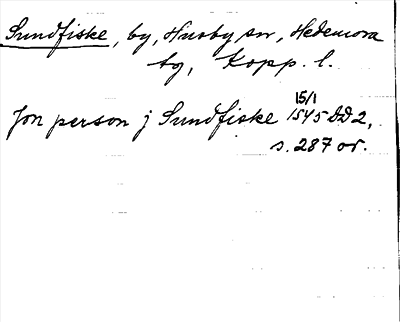 Sundfiske, by, Husby sn, Hedemora
tg, Kopp. l.
Jon person j Sundfiske 15/1 1545 DD 2,
s. 287 or.